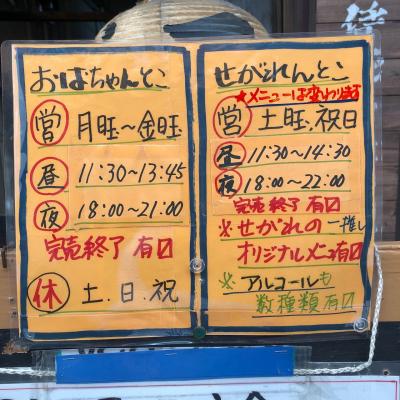 おばちゃんとこ
営 月旺〜金旺
昼 11:30〜13:45
夜 18:00〜21:00
完売終了 有〼
休 土.日.祝
せがれんとこ
★メニューは変わります
営 土旺.祝日
昼 11:30〜14:30
夜 18:00〜22:00
完売終了 有〼
※せがれの一推し
オリジナルメニュー有〼
※アルコールも
数種類有〼